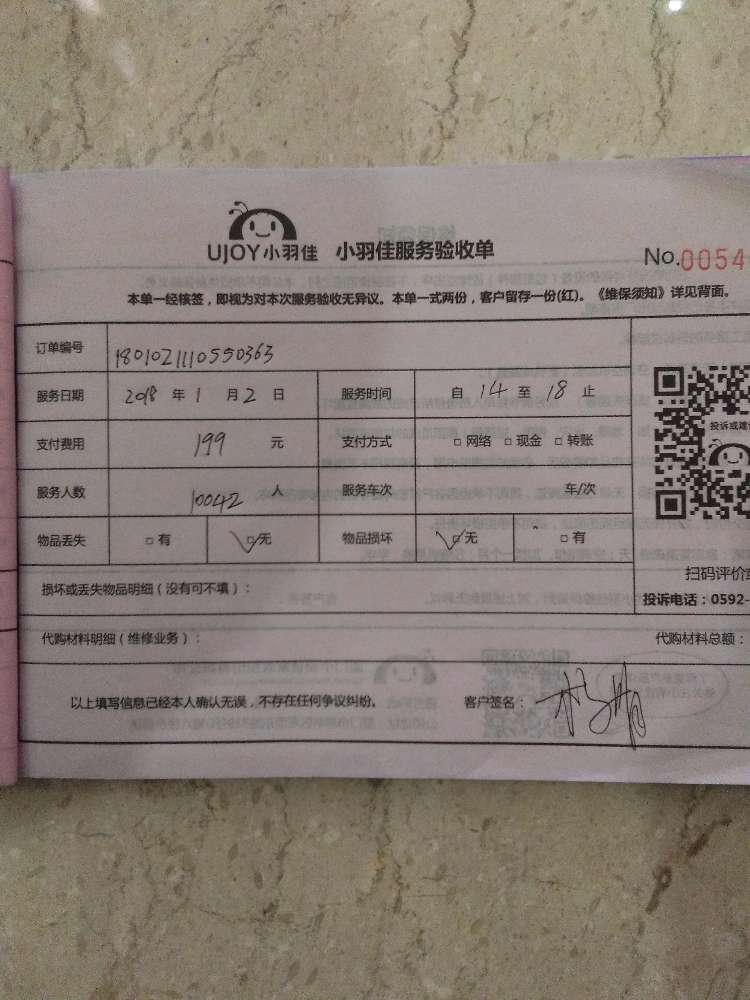 UJOY小羽佳 小羽佳服务验收单
No.0054
本单一经核签，即视为对本次服务验收无异议。本单一式两份，客户留存一份(红)。《维保须知》详见背面。
订单编号 1801021110550363
服务日期 2018 年 1 月 2 日 服务时间 自 14 至 18 止
支付费用 199 元 支付方式 □ 网络 □ 现金 □ 转账
服务人数 10042 人 服务车次 车/次
物品丢失 □ 有 □ 无 物品损坏 □ 无 □ 有
投诉或建
扫码评价
投诉电话：0592-
损坏或丢失物品明细（没有可不填）：
代购材料明细（维修业务）： 代购材料总额：
以上填写信息已经本人确认无误，不存在任何争议纠纷。 客户签名：